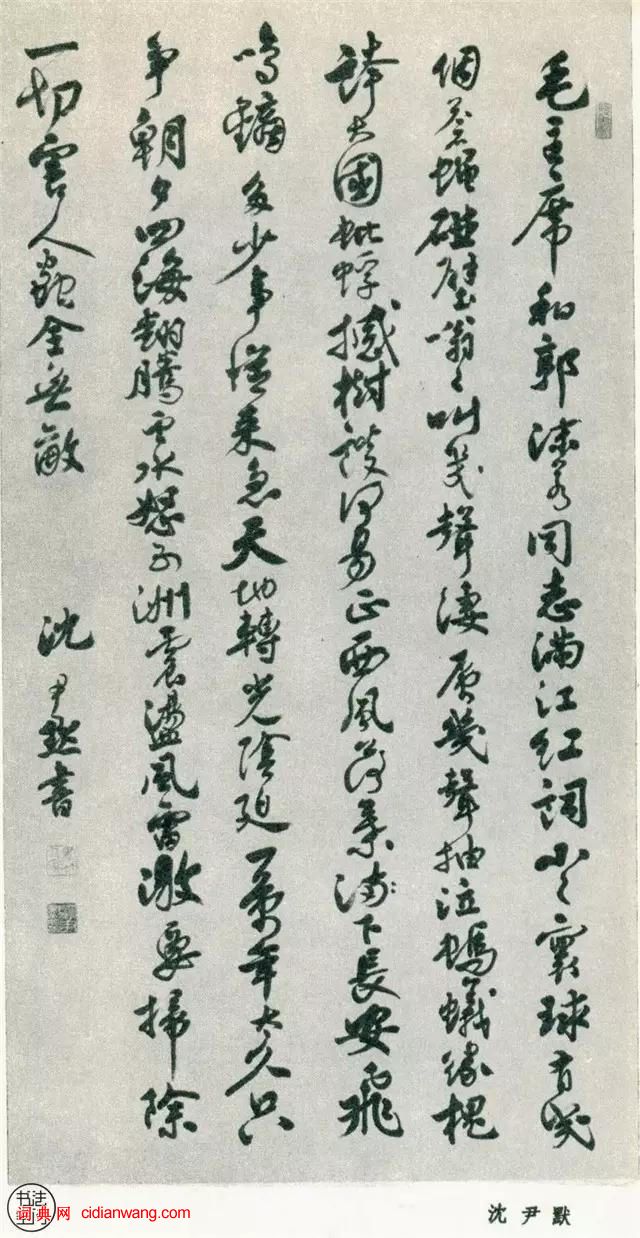 毛主席和郭沫若同志满江红词小小寰球有几
個蒼蠅碰壁嗡嗡叫幾聲淒厲幾聲抽泣螞蟻緣槐
誇大國蚍蜉撼樹談何易正西風落葉滿下長安飛
鳴鏑多少事從来急天地轉光陰迫一萬年太久只
争朝夕四海翻騰雲水怒五洲震盪風雷激要掃除
一切害人蟲全無敵
沈尹默書
书法
词典网 cidianwang.com
沈尹默